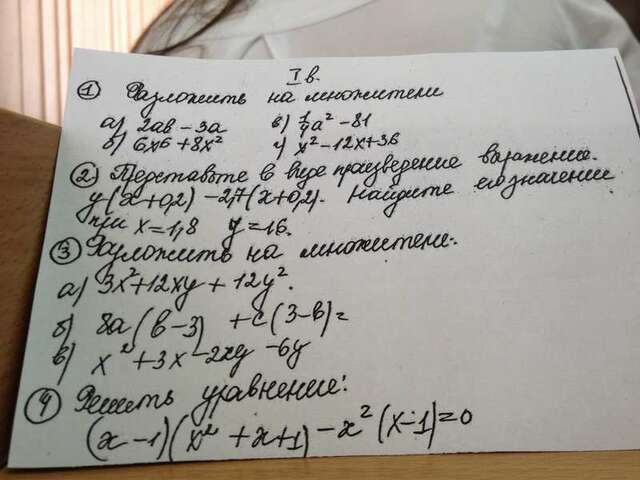 I в.
① Разложить на множители
а) 2ab - 3a   в) 1/4a² - 81
б) 6x⁶ + 8x²   г) x² - 12x + 36
② Представьте в виде произведение выражение.
y(x+0,2) - 2,7(x+0,2). Найдите его значение
при x = 1,8   y = -16.
③ Разложить на множители:
а) 3x² + 12xy + 12y².
б) 8a(b-3) + c(3-b) =
в) x² + 3x - 2xy - 6y
④ Решить уравнение:
(x-1)(x² + x + 1) - x²(x-1) = 0